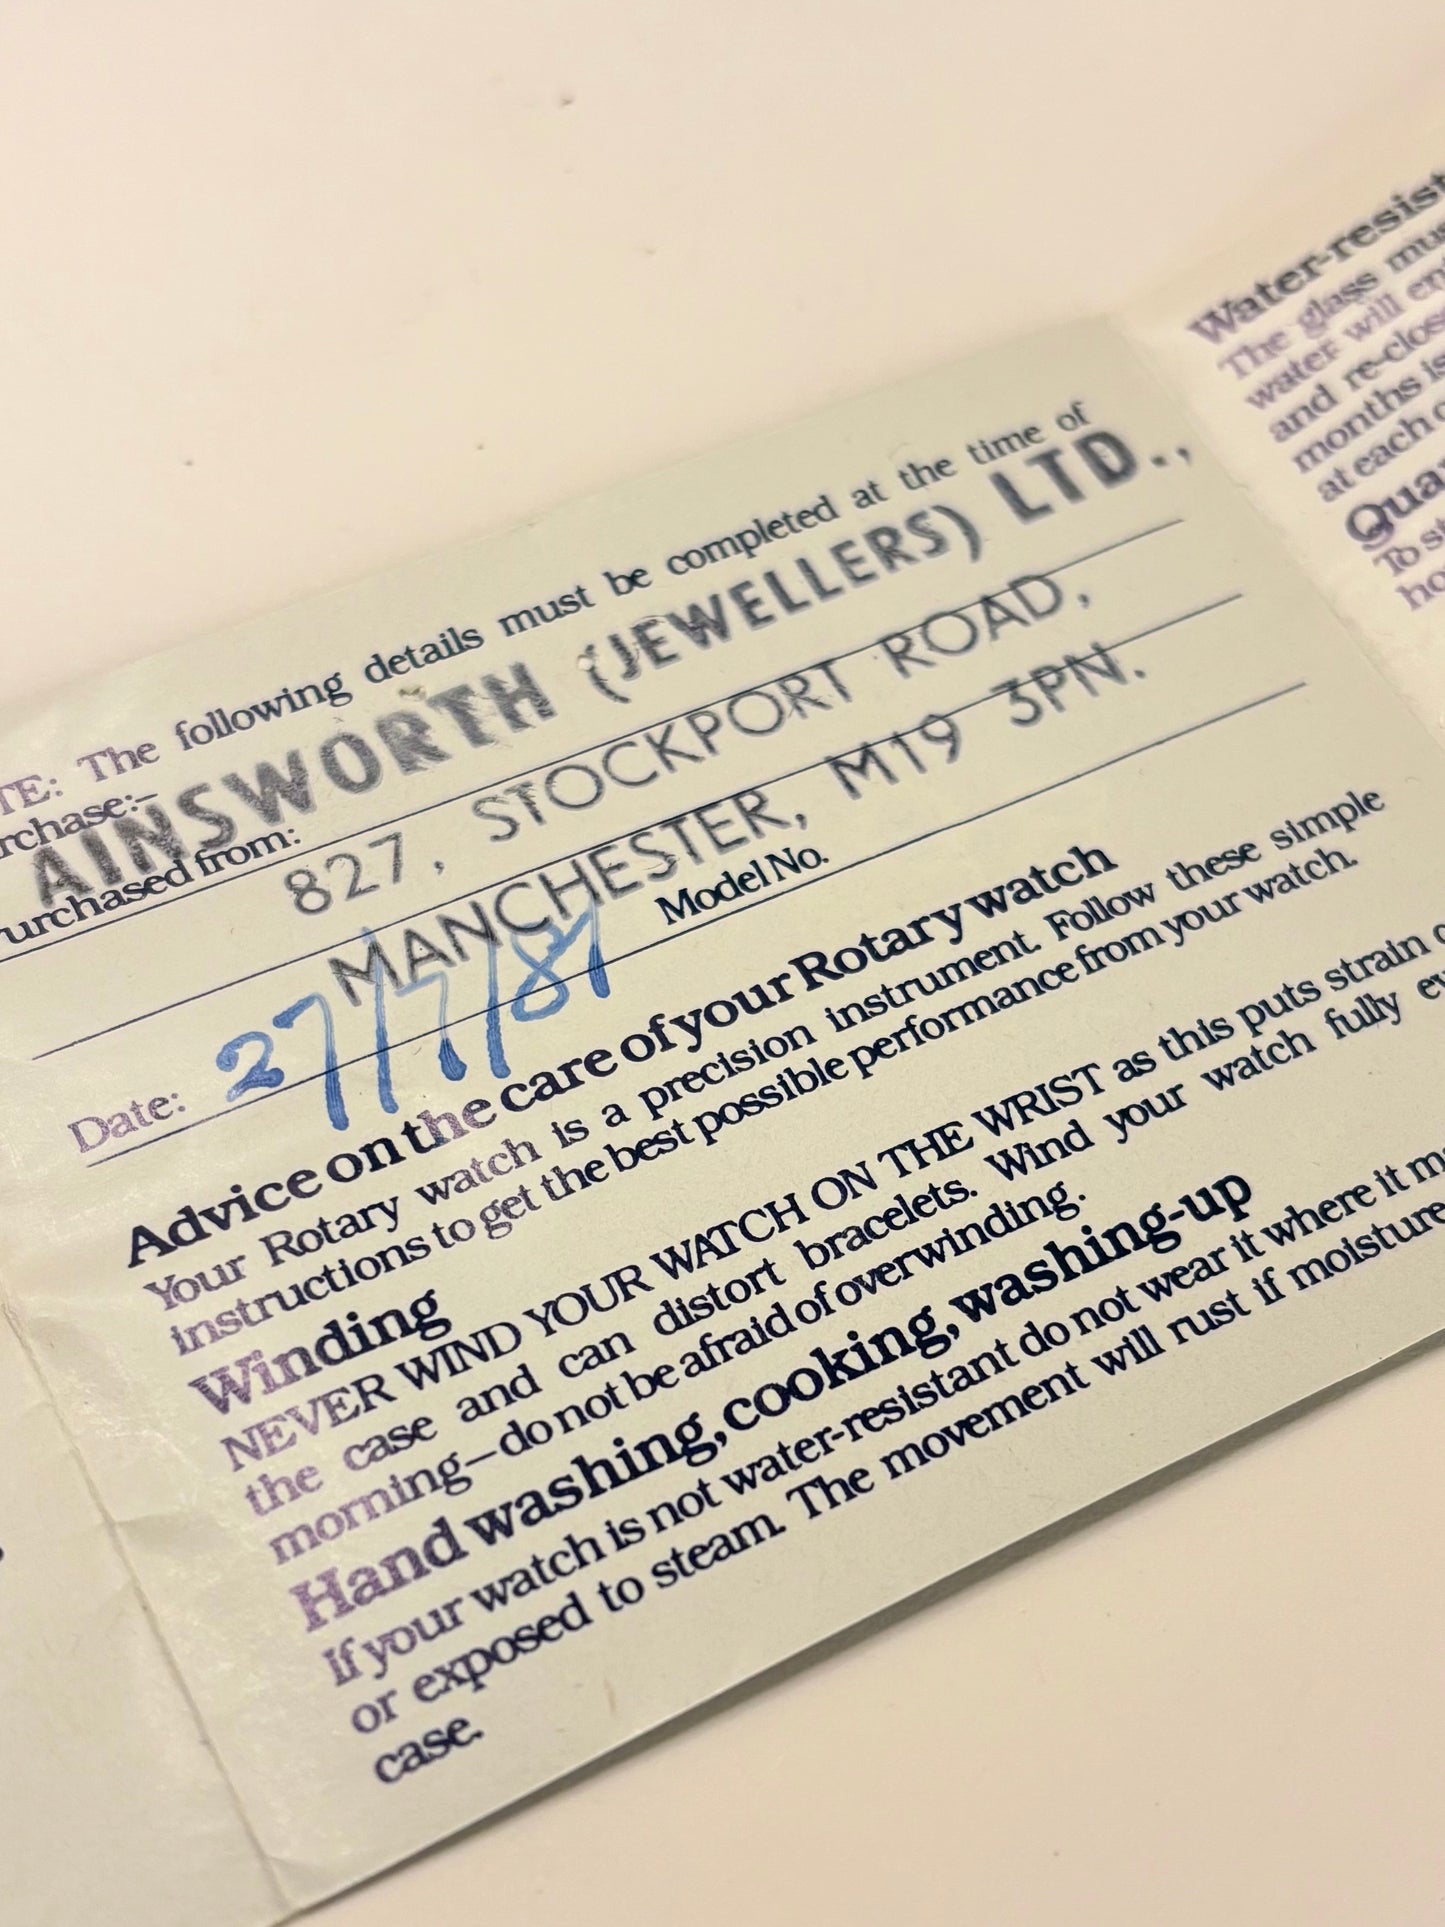 The following details must be completed at the time of
AINSWORTH (JEWELLERS) LTD.,
827, STOCKPORT ROAD,
MANCHESTER, M19 3PN.
from:
Date: 27/7/81 Model No.
Advice on the care of your Rotary watch
Your Rotary watch is a precision instrument. Follow these simple
instructions to get the best possible performance from your watch.
Winding
NEVER WIND YOUR WATCH ON THE WRIST as this puts strain
the case and can distort bracelets. Wind your watch fully
morning—do not be afraid of overwinding.
Hand washing, cooking, washing-up
If your watch is not water-resistant do not wear it where it
or exposed to steam. The movement will rust if moisture
case.
Water-resist
The glass
water will
and
months is
at each